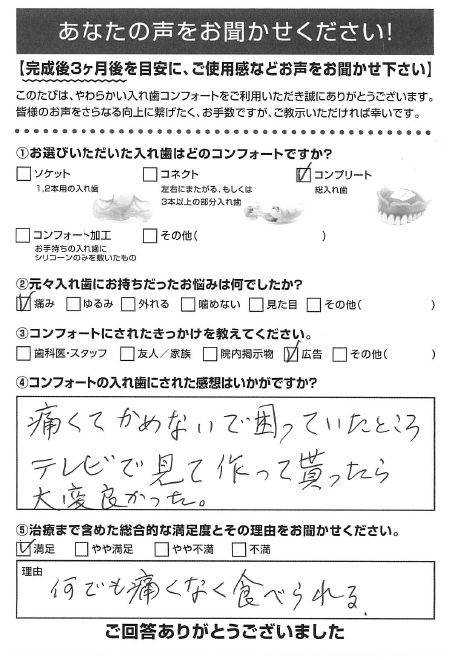 あなたの声をお聞かせください!
【完成後3ヶ月後を目安に、ご使用感などお声をお聞かせ下さい】
このたびは、やわらかい入れ歯コンフォートをご利用いただき誠にありがとうございます。
皆様のお声をさらなる向上に繋げたく、お手数ですが、ご教示いただければ幸いです。
①お選びいただいた入れ歯はどのコンフォートですか?
ソケット コネクト コンプリート
1,2本用の入れ歯 左右にまたがる、もしくは 総入れ歯
3本以上の部分入れ歯
コンフォート加工 その他( )
お手持ちの入れ歯に
シリコーンのみを敷いたもの
②元々入れ歯にお持ちだったお悩みは何でしたか?
痛み ゆるみ 外れる 噛めない 見た目 その他( )
③コンフォートにされたきっかけを教えてください。
歯科医・スタッフ 友人/家族 院内掲示物 広告 その他( )
④コンフォートの入れ歯にされた感想はいかがですか?
痛くてかめないで困っていたところ
テレビで見て作って貰ったら
大変良かった。
⑤治療まで含めた総合的な満足度とその理由をお聞かせください。
満足 やや満足 やや不満 不満
理由
何でも痛くなく食べられる。
ご回答ありがとうございました